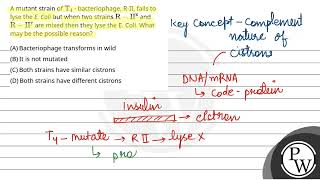 A mutant strain of T₄ - bacteriophage, R-II, fails to
lyse the E. Coli but when two strains R – IIˣ and
R – IIʸ are mixed then they lyse the E. Coli. What
may be the possible reason?
(A) Bacteriophage transforms in wild
(B) It is not mutated
(C) Both strains have similar cistrons
(D) Both strains have different cistrons
Key Concept - Complement
nature of
cistrons
DNA/mRNA
↳ Code - protein
Insulin
→ cistron
T₄ - mutate → R II → lyse X
PW